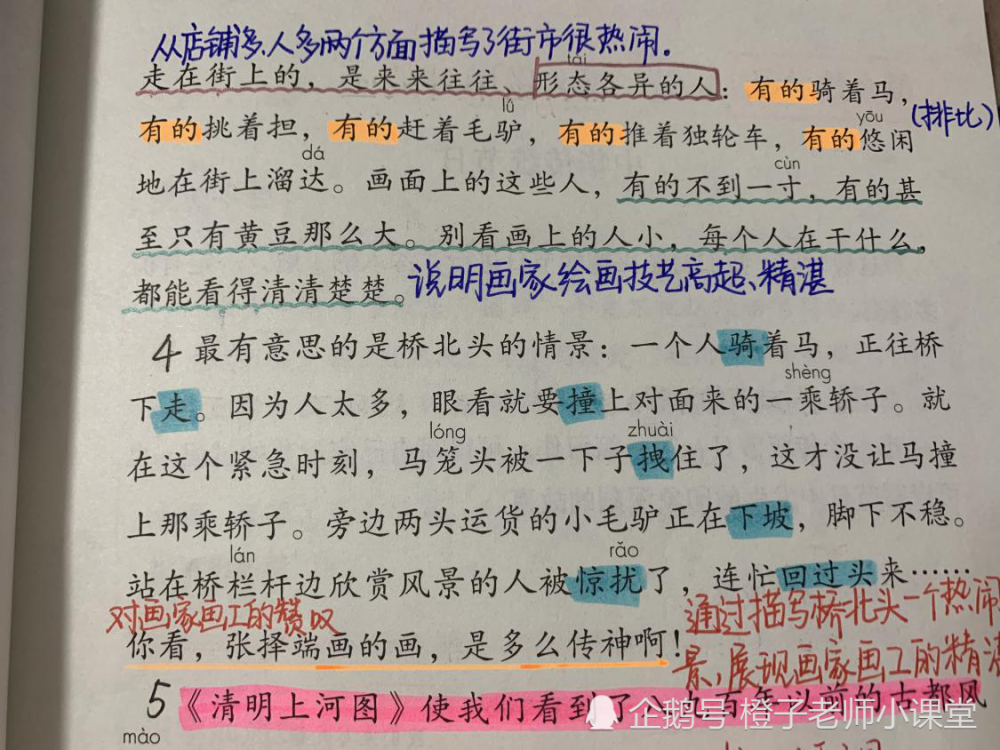 从店铺多、人多两个方面描写了街市很热闹.
tài
走在街上的，是来来往往、形态各异的人：有的骑着马，
lǘ
yōu
(排比)
有的挑着担，有的赶着毛驴，有的推着独轮车，有的悠闲
dá
cùn
地在街上溜达。画面上的这些人，有的不到一寸，有的甚
至只有黄豆那么大。别看画上的人小，每个人在干什么，
都能看得清清楚楚。说明画家绘画技艺高超、精湛
4 最有意思的是桥北头的情景：一个人骑着马，正往桥
shèng
下走。因为人太多，眼看就要撞上对面来的一乘轿子。就
lóng
zhuài
在这个紧急时刻，马笼头被一下子拽住了，这才没让马撞
上那乘轿子。旁边两头运货的小毛驴正在下坡，脚下不稳。
lán
rǎo
站在桥栏杆边欣赏风景的人被惊扰了，连忙回过头来……
对画家画工的赞叹
通过描写桥北头一个热闹
你看，张择端画的画，是多么传神啊！
景，展现画家画工的精湛
5 《清明上河图》使我们看到了八九百年以前的古都风
mào
企鹅号 橙子老师小课堂